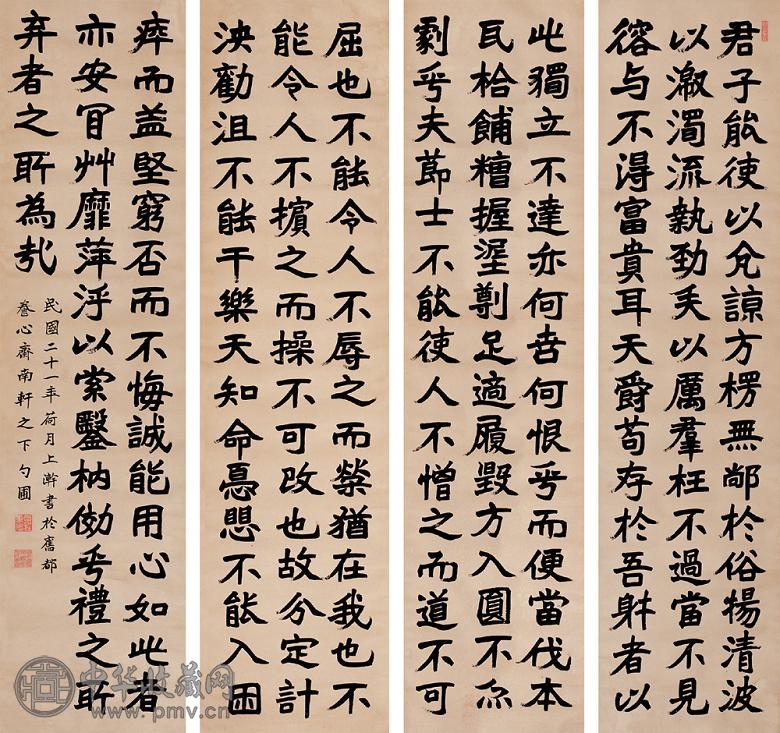 君子能使以亢諒方楞無鄗於俗揚清波
以激濁流執勁矢以厲羣枉不過當不見
容与不得富貴耳天爵苟存於吾躰者以
此獨立不達亦何苦何恨乎而便當伐本
瓦枱餔糟握埿剸足適履毀方入圓不亦
劇乎夫節士不能使人不憎之而道不可
屈也不能令人不辱之而榮猶在我也不
能令人不擯之而操不可改也故分定計
決勸沮不能干樂天知命憂愳不能入困
瘁而益堅窮否而不悔誠能用心如此者
亦安肎艸靡萍浮以索鑿枘効乎禮之所
弃者之所為哉
民國二十一年荷月上澣書於舊都
養心齋南軒之下勺圃
中华收藏网
www.pmv.cn